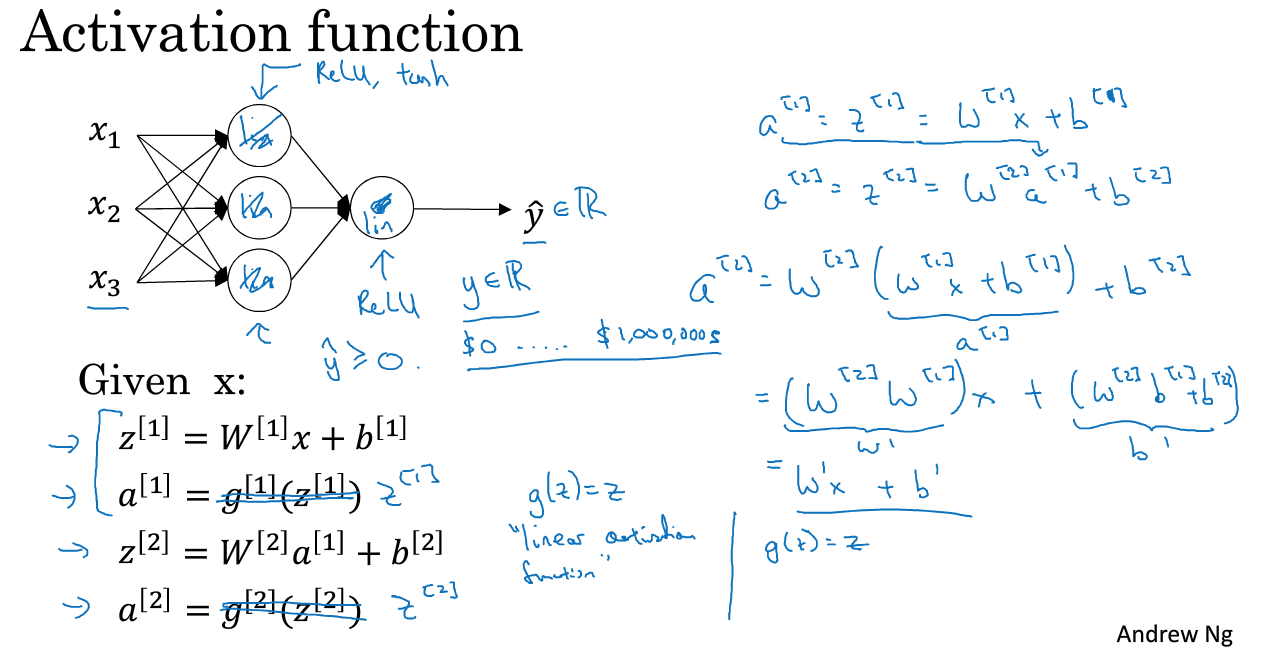 Activation function
ReLU, tanh
x₁
x₂
x₃
lin
ŷ ∈ ℝ
ReLU
y ∈ ℝ
ŷ ≥ 0.
$0 ..... $1,000,000s
Given x:
→ z[1] = W[1]x + b[1]
→ a[1] = g[1](z[1]) z[1]
→ z[2] = W[2]a[1] + b[2]
→ a[2] = g[2](z[2]) z[2]
g(z) = z
"linear activation
function"
a[1] = z[1] = W[1]x + b[1]
a[2] = z[2] = W[2]a[1] + b[2]
a[2] = W[2](W[1]x + b[1]) + b[2]
a[1]
= (W[2]W[1])x + (W[2]b[1] + b[2])
W' b'
= W'x + b'
g(z) = z
Andrew Ng